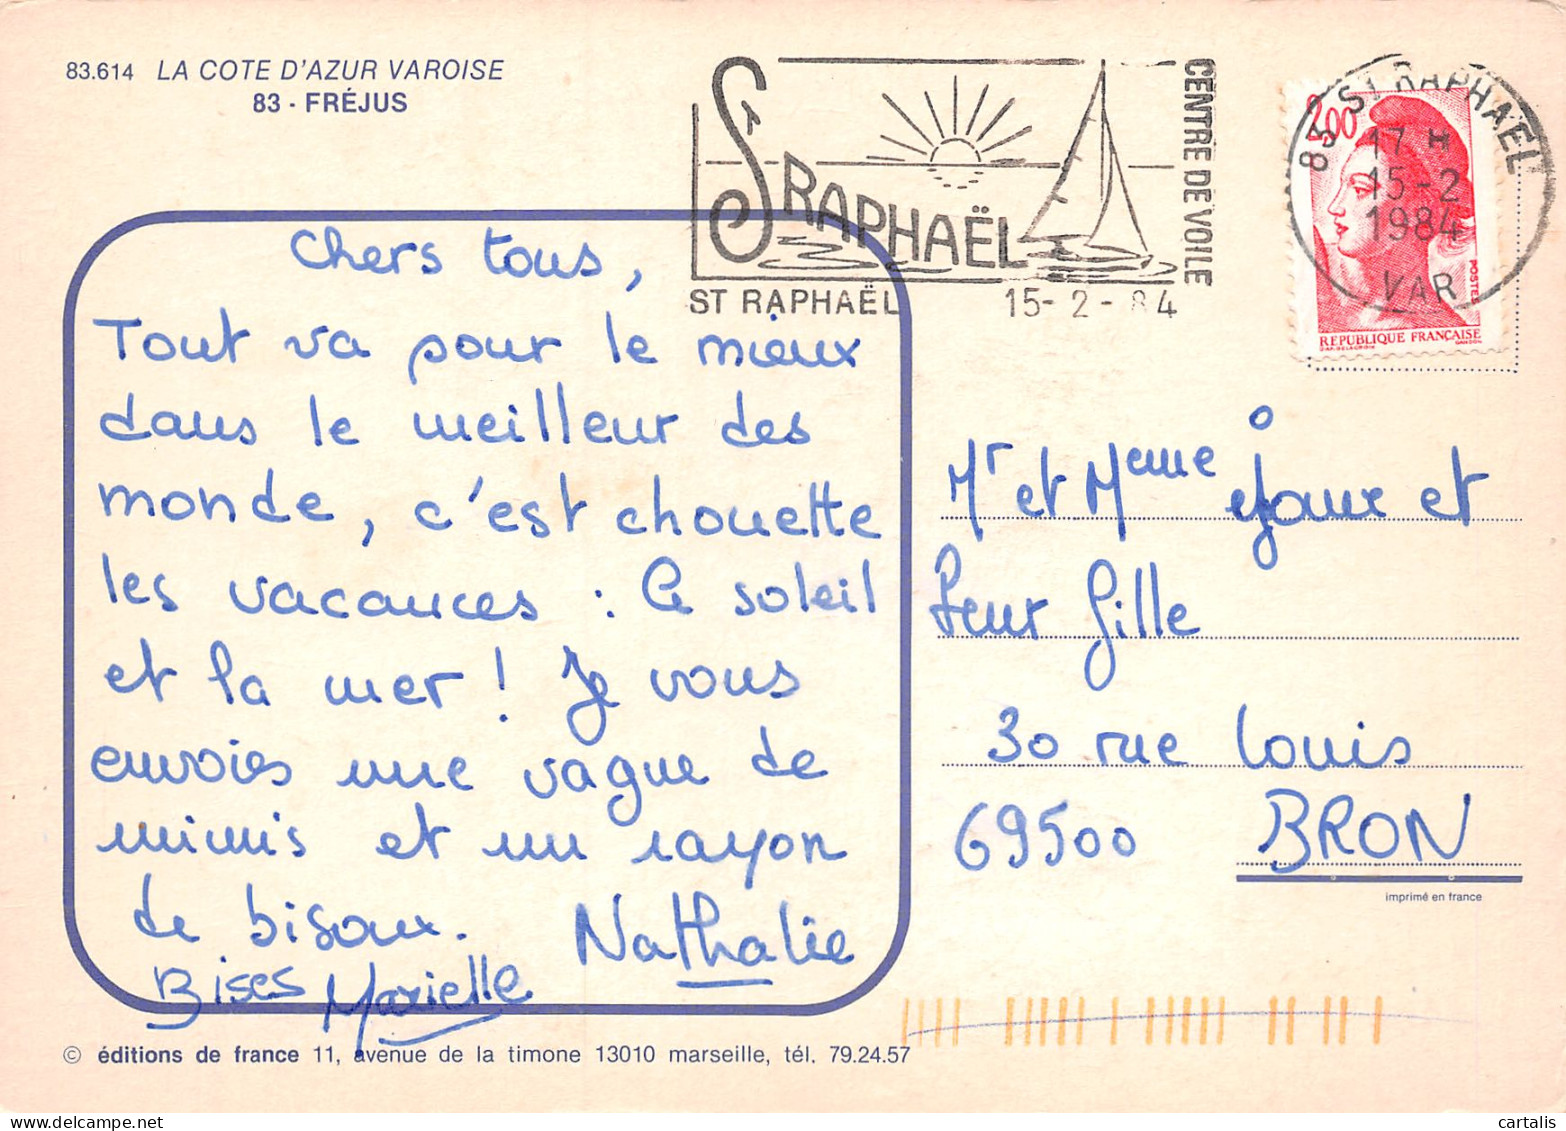 83.614 LA COTE D'AZUR VAROISE
83 - FRÉJUS
ST RAPHAËL
CENTRE DE VOILE
ST RAPHAËL 15-2-84
2,00
83 ST RAPHAEL
17 H
15-2
1984
VAR
POSTES
REPUBLIQUE FRANÇAISE
Chers tous,
Tout va pour le mieux
dans le meilleur des
monde, c'est chouette
les vacances : le soleil
et la mer ! Je vous
envoies une vague de
mimis et un rayon
de bisoux. Nathalie
Bises Marielle
Mr et Meme Joux et
leur fille
30 rue Louis
69500 BRON
imprimé en france
© éditions de france 11, avenue de la timone 13010 marseille, tél. 79.24.57
cartalis